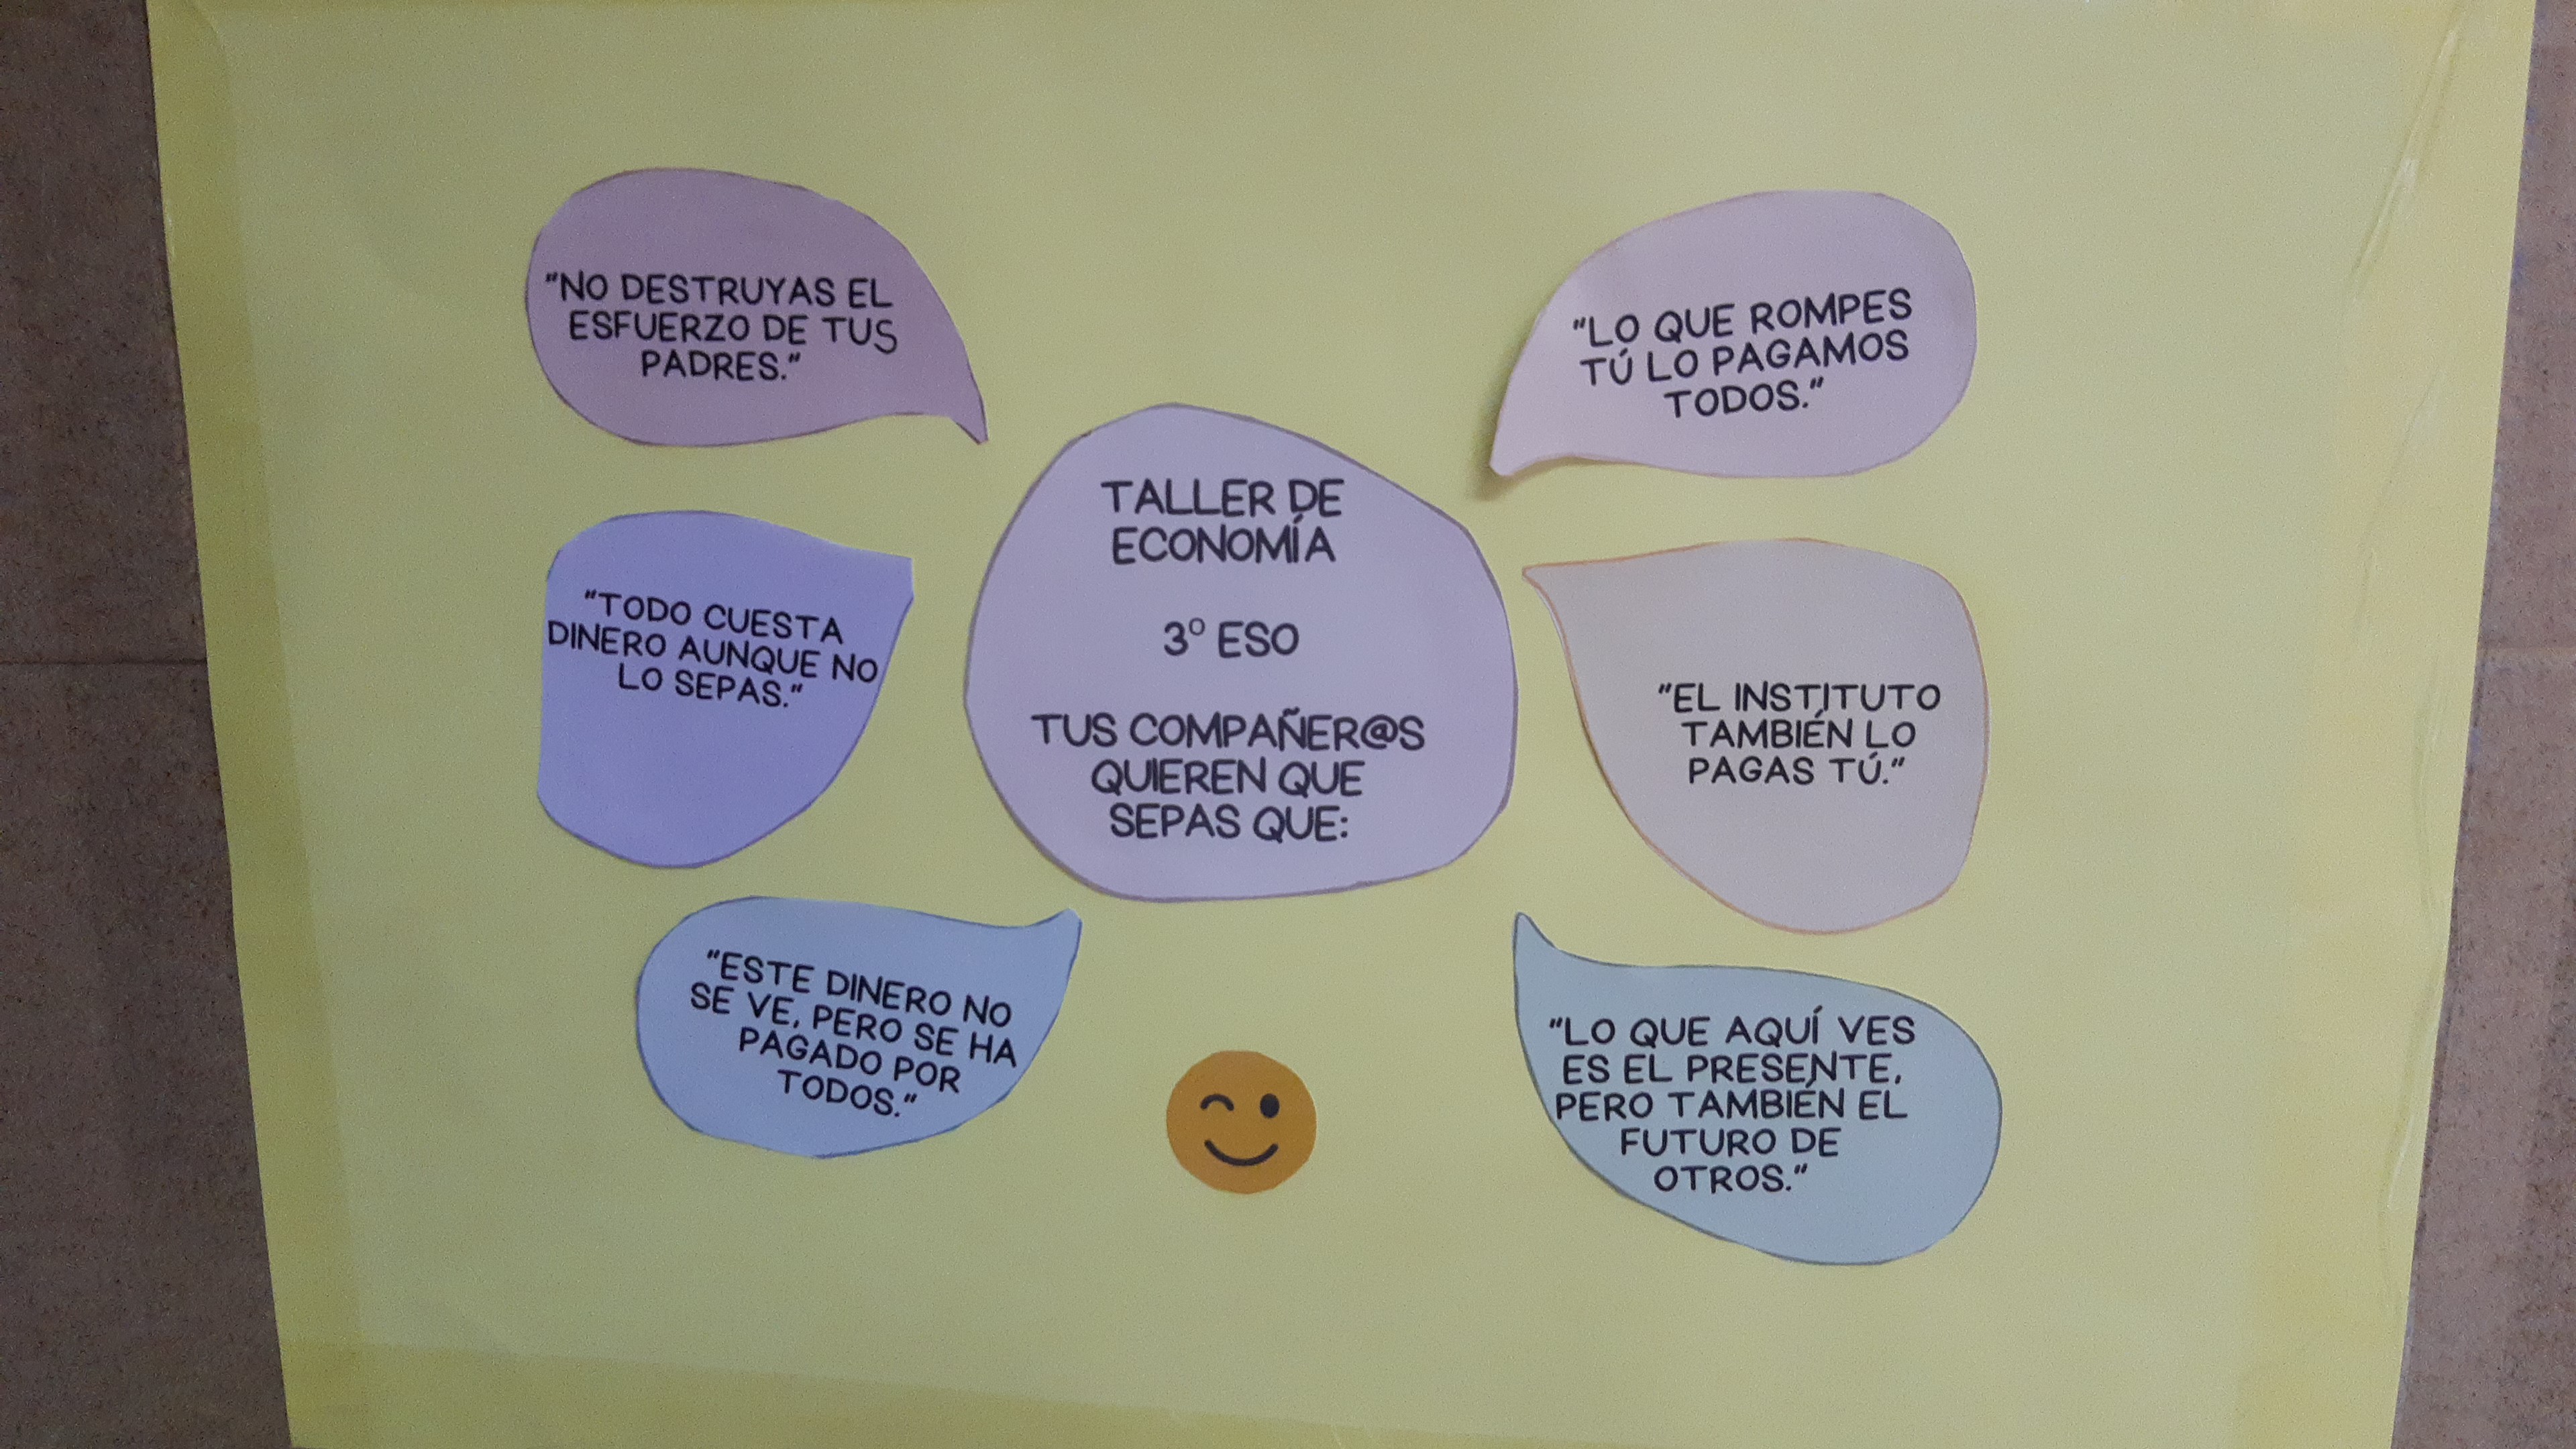 "NO DESTRUYAS EL
ESFUERZO DE TUS
PADRES."
"LO QUE ROMPES
TÚ LO PAGAMOS
TODOS."
TALLER DE
ECONOMÍA
3º ESO
TUS COMPAÑER@S
QUIEREN QUE
SEPAS QUE:
"TODO CUESTA
DINERO AUNQUE NO
LO SEPAS."
"EL INSTITUTO
TAMBIÉN LO
PAGAS TÚ."
"ESTE DINERO NO
SE VE, PERO SE HA
PAGADO POR
TODOS."
"LO QUE AQUÍ VES
ES EL PRESENTE,
PERO TAMBIÉN EL
FUTURO DE
OTROS."